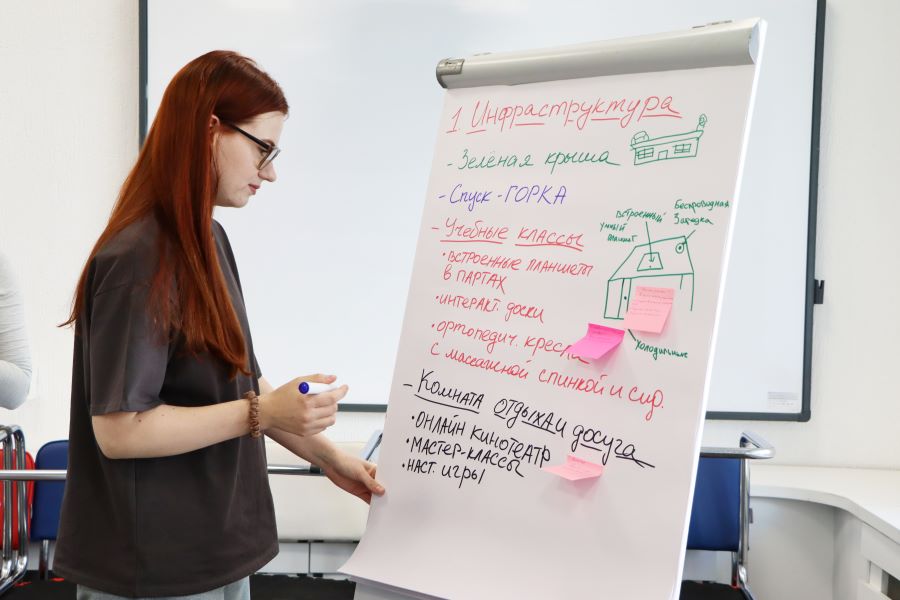 1. Инфраструктура
- Зелёная крыша
- Спуск - ГОРКА
- Учебные классы
встроенный
умный
планшет
Беспроводная
Зарядка
• встроенные планшеты
в партах
• интеракт. доски
• ортопедич. кресла
с массажной спинкой и сид.
холодильник
- Комната отдыха и досуга
• онлайн кинотеатр
• мастер-классы
• наст. игры